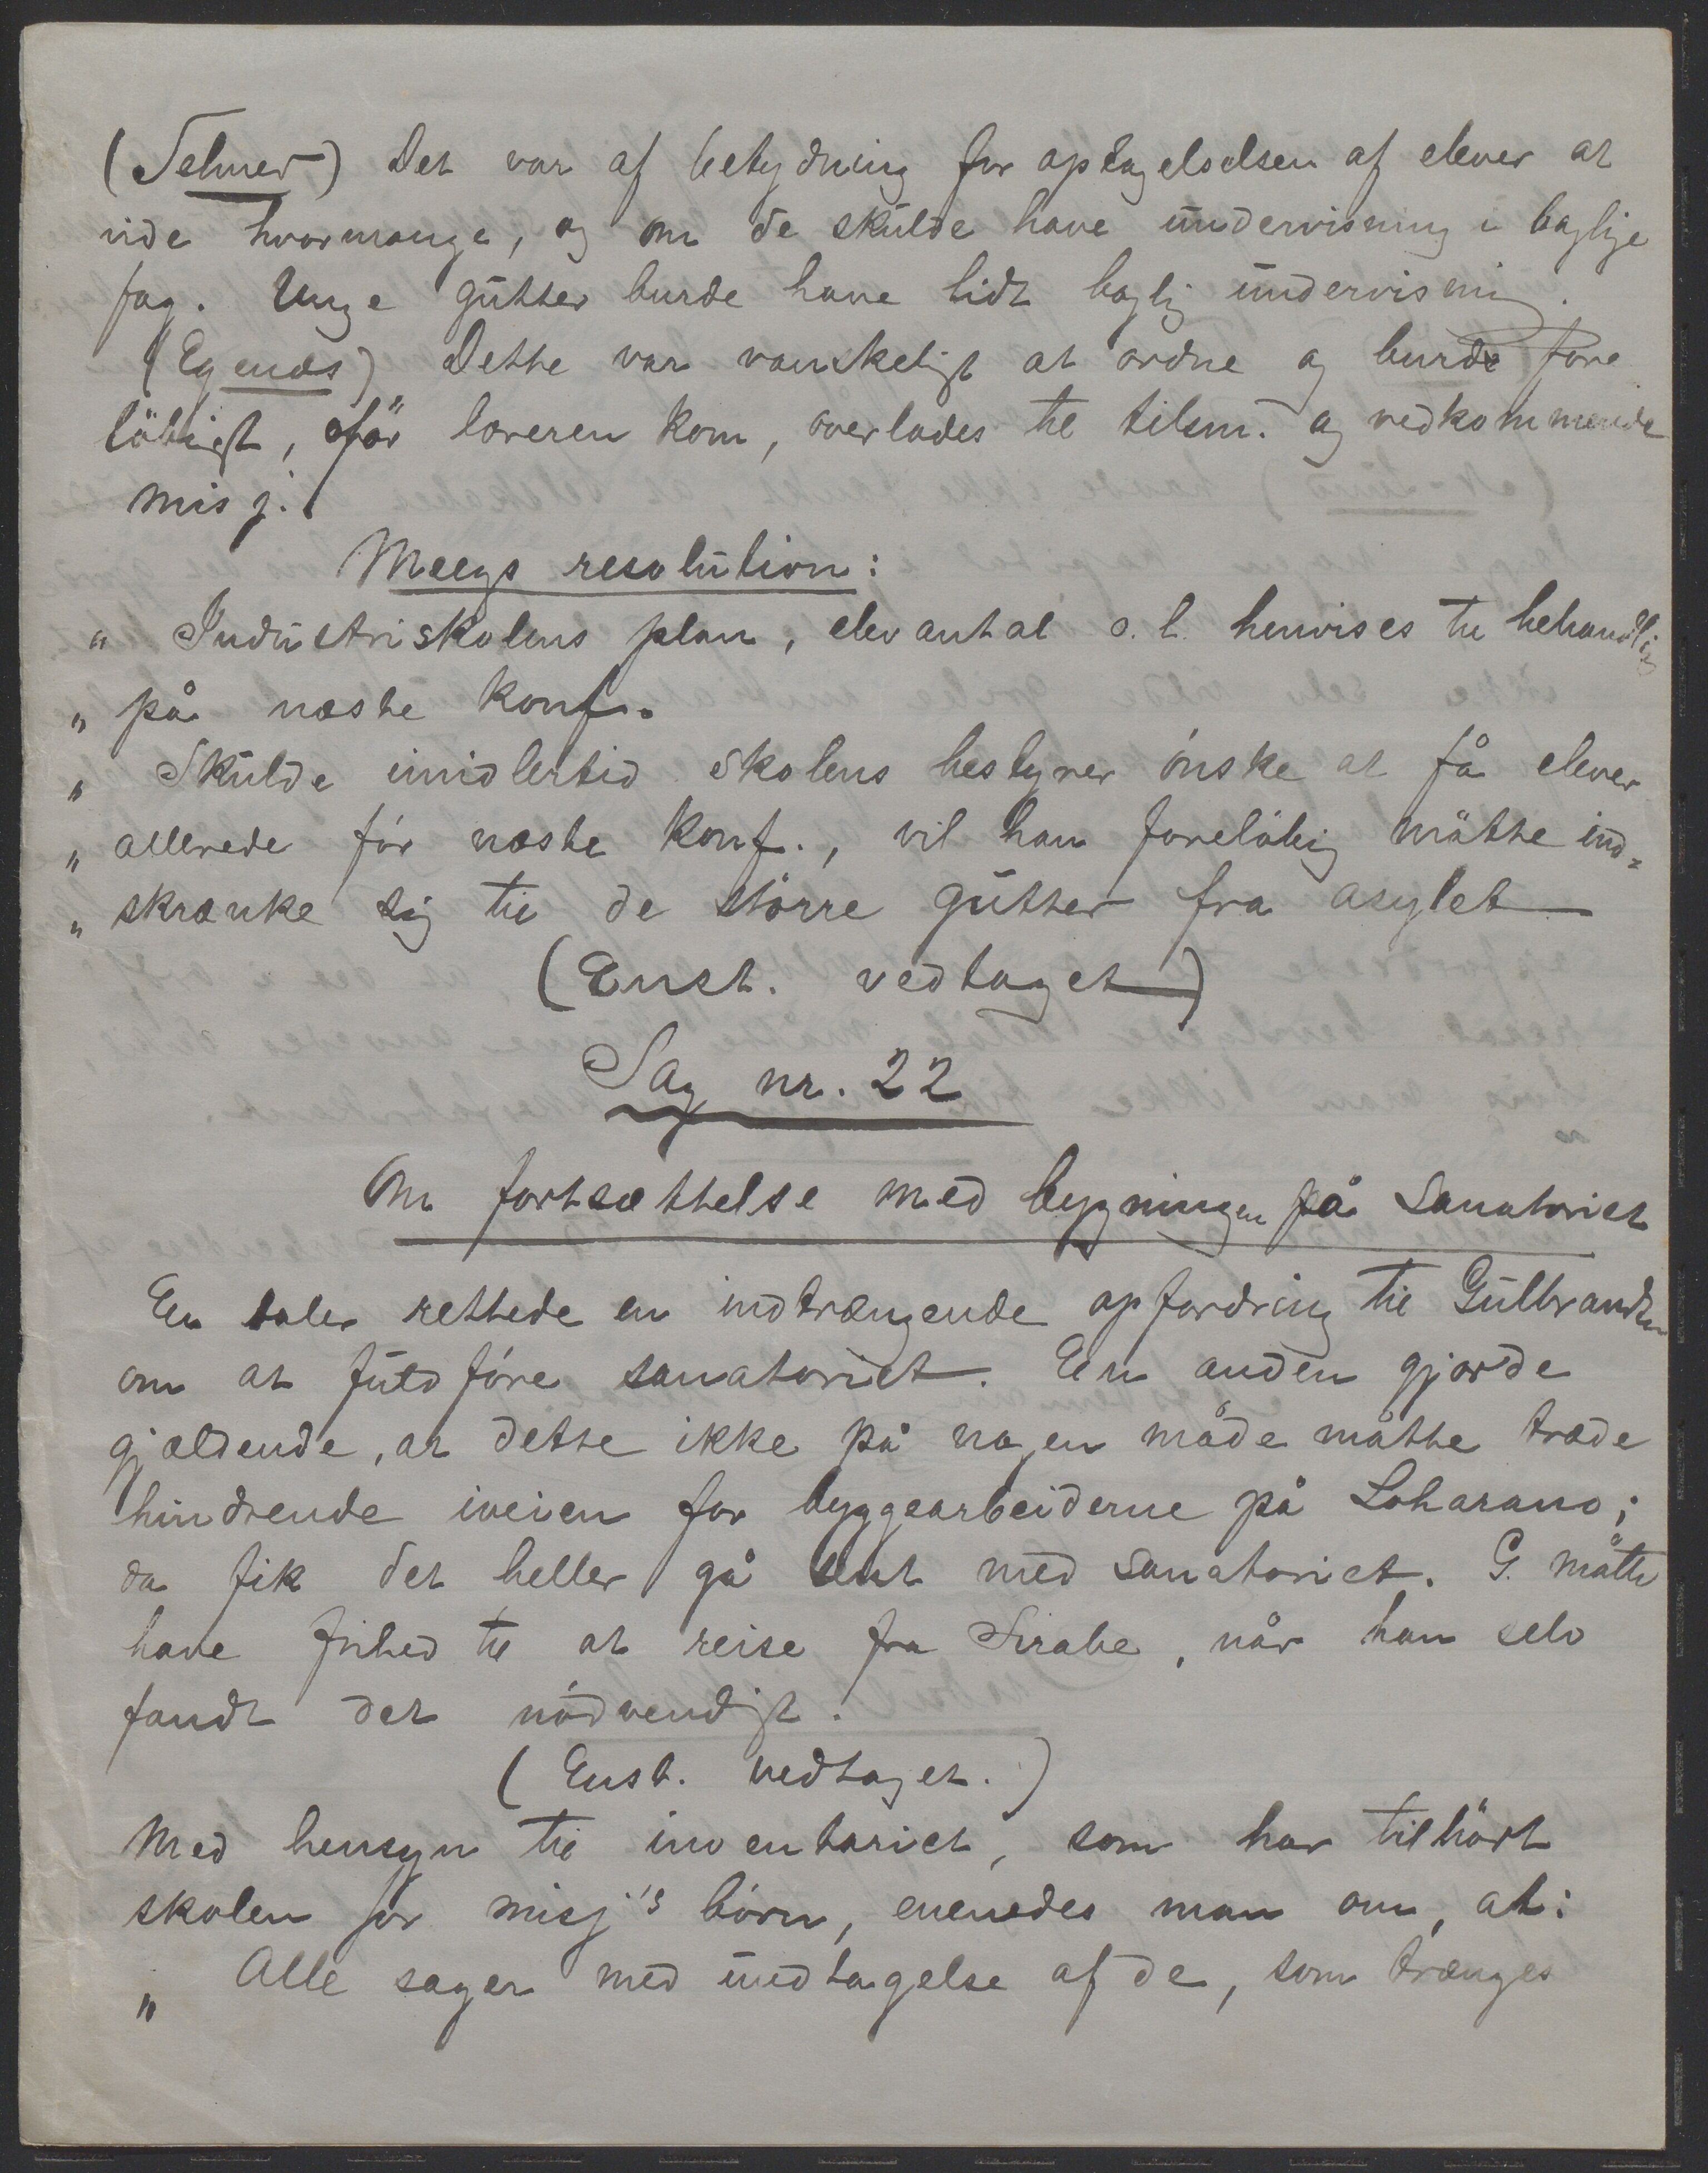 (Selmer) Det var af betydning for optagelselsen af elever at
vide hvormange, og om de skulde have undervisning i boglige
fag. Unge gutter burde have lidt boglig undervisning.
(Egenæs) Dette var vanskeligt at ordne og burde fore
löbigt, för læreren kom, overlades til tilsm. og vedkommende
misj.
Meegs resolution:
„ Industriskolens plan, elevantal o. l. henvises til behandling
„ på næste konf.
„ Skulde imidlertid skolens bestyrer önske at få elever
„ allerede för næste konf., vil han forelöbig måtte ind-
„ skrænke sig til de större gutter fra asylet
(Enst. vedtaget)
Sag nr. 22
Om fortsættelse med bygningen på Sanatoriet
En taler rettede en indtrængende opfordring til Gulbrandsen
om at fuldföre sanatoriet. En anden gjorde
gjældende, at dette ikke på nogen måde måtte træde
hindrende iveien for byggearbeiderne på Loharano;
da fik det heller gå sent med sanatoriet. G. måtte
have frihed til at reise fra Sirabe, når han selv
fandt det nödvendigt.
(Enst. vedtaget.)
Med hensyn til inventariet, som har tilhört
skolen for misj's börn, enenedes man om, at:
„ Alle sager med undtagelse af de, som trænges